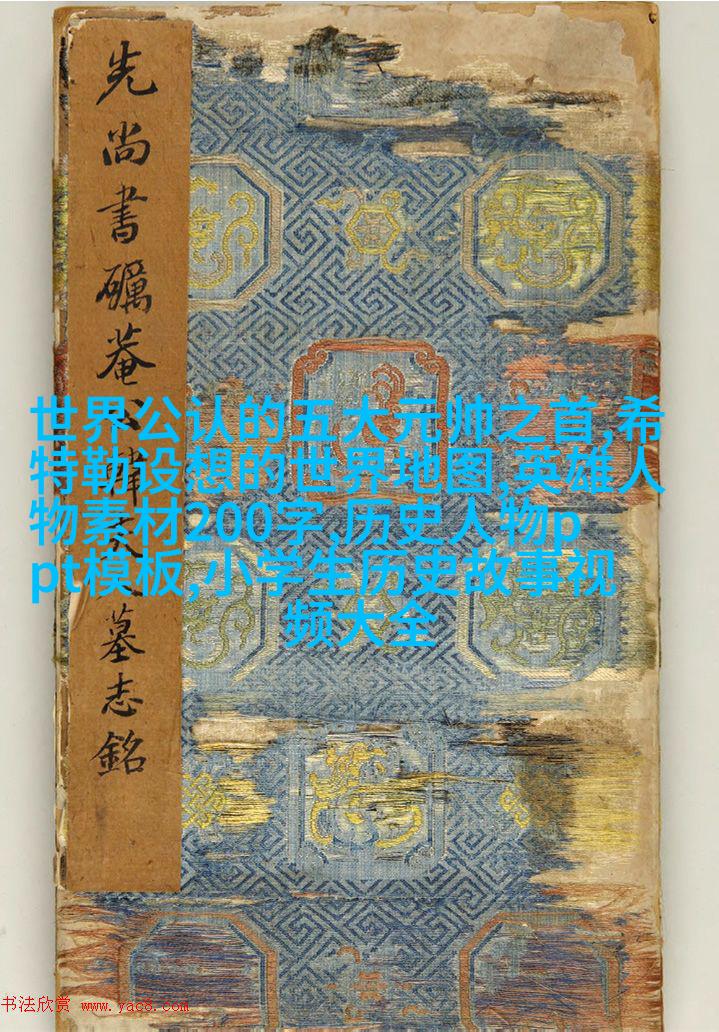 先尚書礪菴公墓志銘
世界公认的五大元帅之首,希
特勒设想的世界地图,英雄人
物素材200字,历史人物p
pt模板,小学生历史故事视
频大全
书法欣赏 www.yac8.com